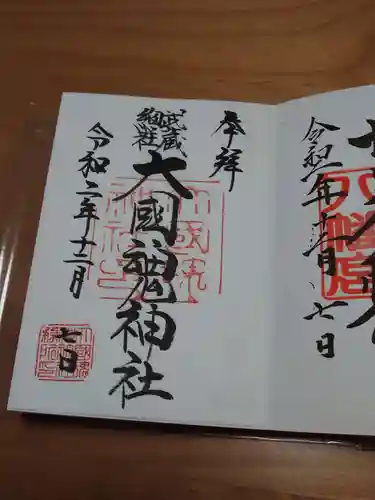 八幡宮
令和二年十二月七日
奉拝
武蔵
総社
大國魂神社
令和二年十二月
七日